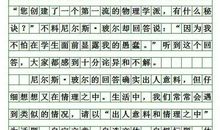 "您创建了一个第一流的物理学派，有什么秘
诀？"不料尼尔斯·玻尔却回答说："因为我
不怕在学生面前显露我的愚蠢。"听到这个回
答，大家都感到十分诧异和不解。
尼尔斯·玻尔的回答确实出人意料，但仔
细想想又在情理之中。生活中，我们常常会遇
到类似的情况，请以"出人意料和情理之中"